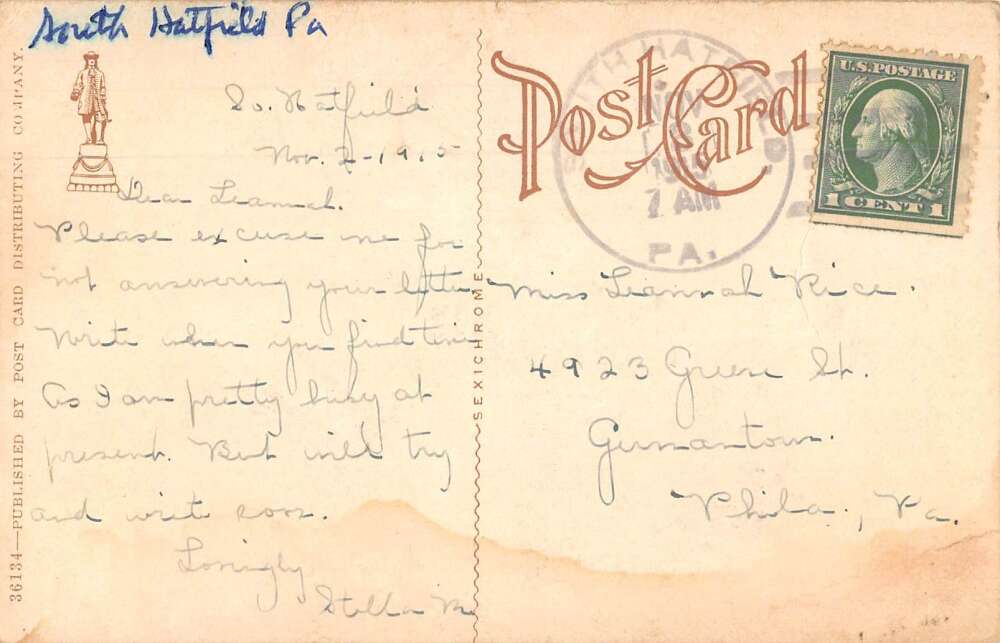 South Hatfield Pa
36134—PUBLISHED BY POST CARD DISTRIBUTING COMPANY.
So. Hatfield
Nov. 2-1915
Dear Leannah.
Please excuse me for
not answering your letter
Write when you find time
As I am pretty busy at
present. But will try
and write soon.
Lovingly
Stella M
SEXICHROME
Post Card
SOUTH HATFIELD
NOV
7 AM
PA.
U.S. POSTAGE
1 CENT 1
Miss Leannah Rice.
4923 Greene St.
Germantown.
Phila., Pa.